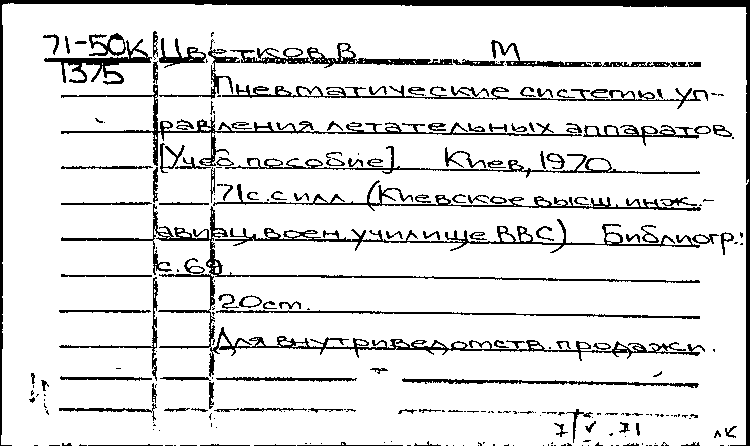 71-50К Цветков, В М
1375
Пневматические системы уп-
равления летательных аппаратов
[Учеб. пособие]. Киев, 1970.
71 с. с илл. (Киевское высш. инж.-
авиац. воен. училище ВВС) Библиогр.:
с. 69.
20 см.
Для внутриведомств. продажи.
7/V.71 лк